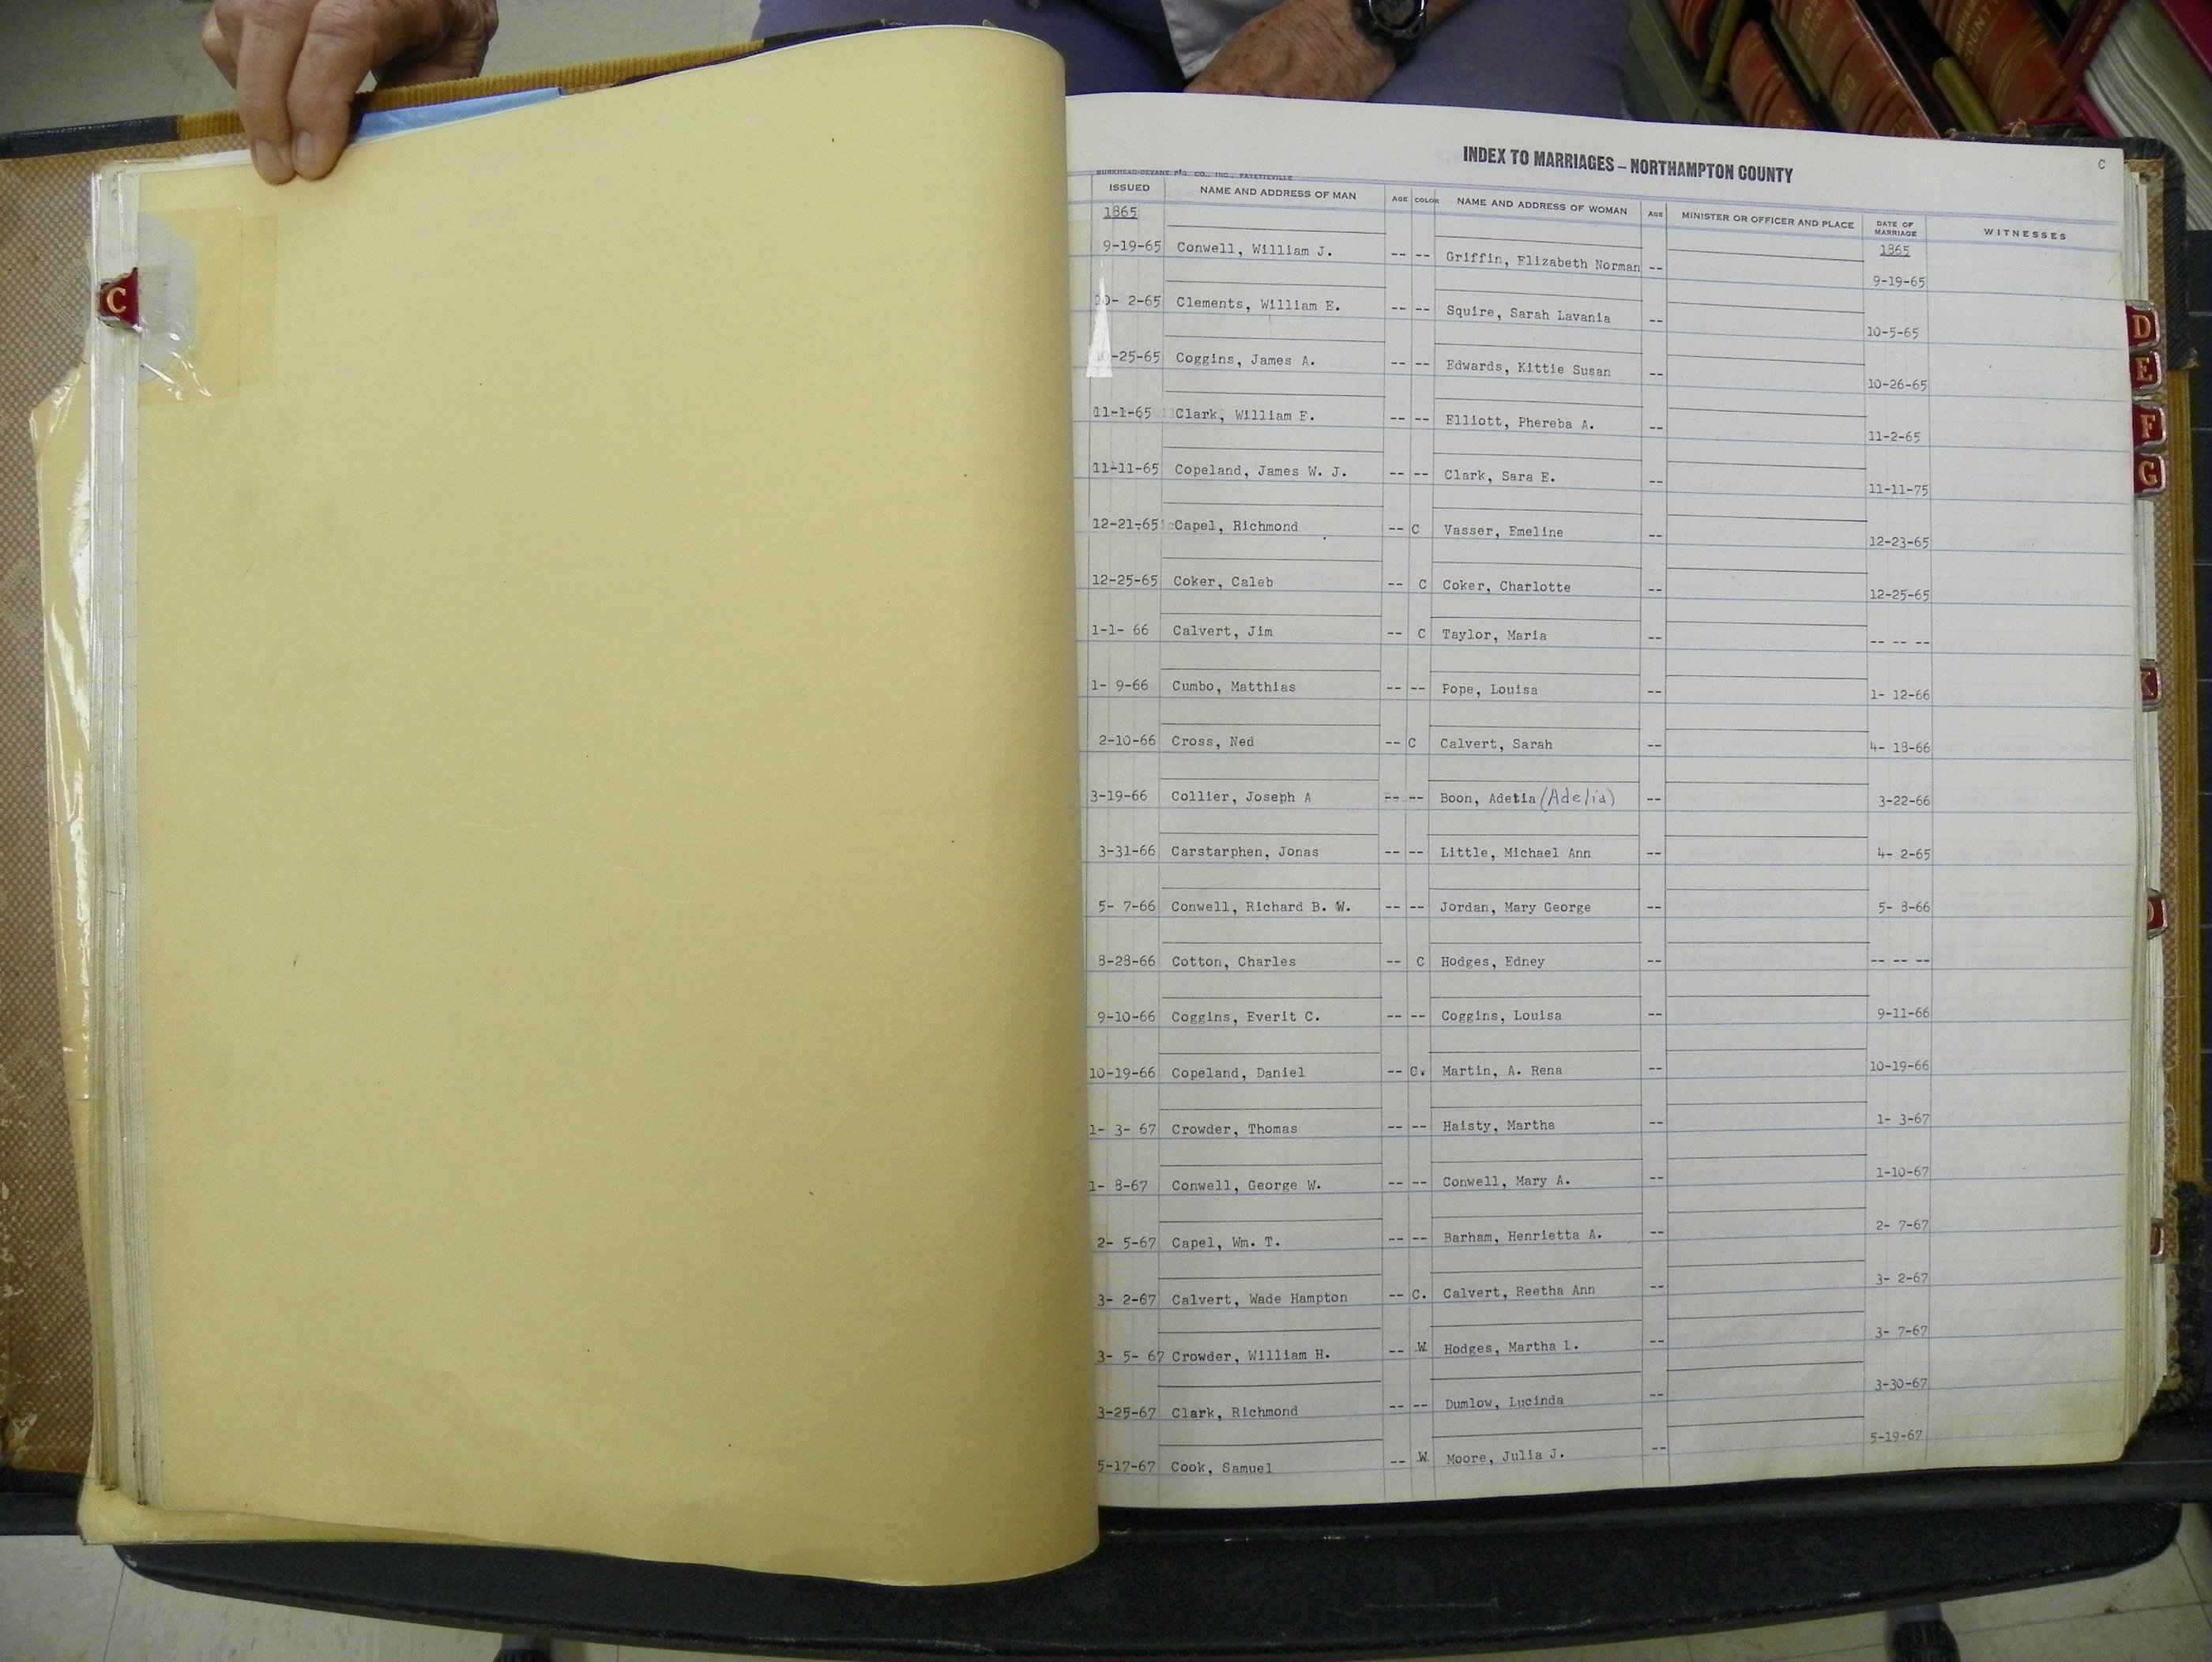 C
INDEX TO MARRIAGES – NORTHAMPTON COUNTY
C
BURKHEAD-DEVANE PTG. CO., INC., FAYETTEVILLE
ISSUED NAME AND ADDRESS OF MAN AGE COLOR NAME AND ADDRESS OF WOMAN AGE MINISTER OR OFFICER AND PLACE DATE OF MARRIAGE WITNESSES
1865 1865
9-19-65 Conwell, William J. -- -- Griffin, Elizabeth Norman -- 9-19-65
10- 2-65 Clements, William E. -- -- Squire, Sarah Lavania -- 10-5-65
10-25-65 Coggins, James A. -- -- Edwards, Kittie Susan -- 10-26-65
11-1-65 Clark, William E. -- -- Elliott, Phereba A. -- 11-2-65
11-11-65 Copeland, James W. J. -- -- Clark, Sara E. -- 11-11-75
12-21-65 Capel, Richmond -- C Vasser, Emeline -- 12-23-65
12-25-65 Coker, Caleb -- C Coker, Charlotte -- 12-25-65
1-1- 66 Calvert, Jim -- C Taylor, Maria -- -- -- --
1- 9-66 Cumbo, Matthias -- -- Pope, Louisa -- 1- 12-66
2-10-66 Cross, Ned -- C Calvert, Sarah -- 4- 18-66
3-19-66 Collier, Joseph A -- -- Boon, Adetia (Adelia) -- 3-22-66
3-31-66 Carstarphen, Jonas -- -- Little, Michael Ann -- 4- 2-65
5- 7-66 Conwell, Richard B. W. -- -- Jordan, Mary George -- 5- 8-66
8-28-66 Cotton, Charles -- C Hodges, Edney -- -- -- --
9-10-66 Coggins, Everit C. -- -- Coggins, Louisa -- 9-11-66
10-19-66 Copeland, Daniel -- C. Martin, A. Rena -- 10-19-66
1- 3- 67 Crowder, Thomas -- -- Haisty, Martha -- 1- 3-67
1- 8-67 Conwell, George W. -- -- Conwell, Mary A. -- 1-10-67
2- 5-67 Capel, Wm. T. -- -- Barham, Henrietta A. -- 2- 7-67
3- 2-67 Calvert, Wade Hampton -- C. Calvert, Reetha Ann -- 3- 2-67
3- 5- 67 Crowder, William H. -- W. Hodges, Martha L. -- 3- 7-67
3-25-67 Clark, Richmond -- -- Dumlow, Lucinda -- 3-30-67
5-17-67 Cook, Samuel -- W. Moore, Julia J. -- 5-19-67
D
E
F
G
K